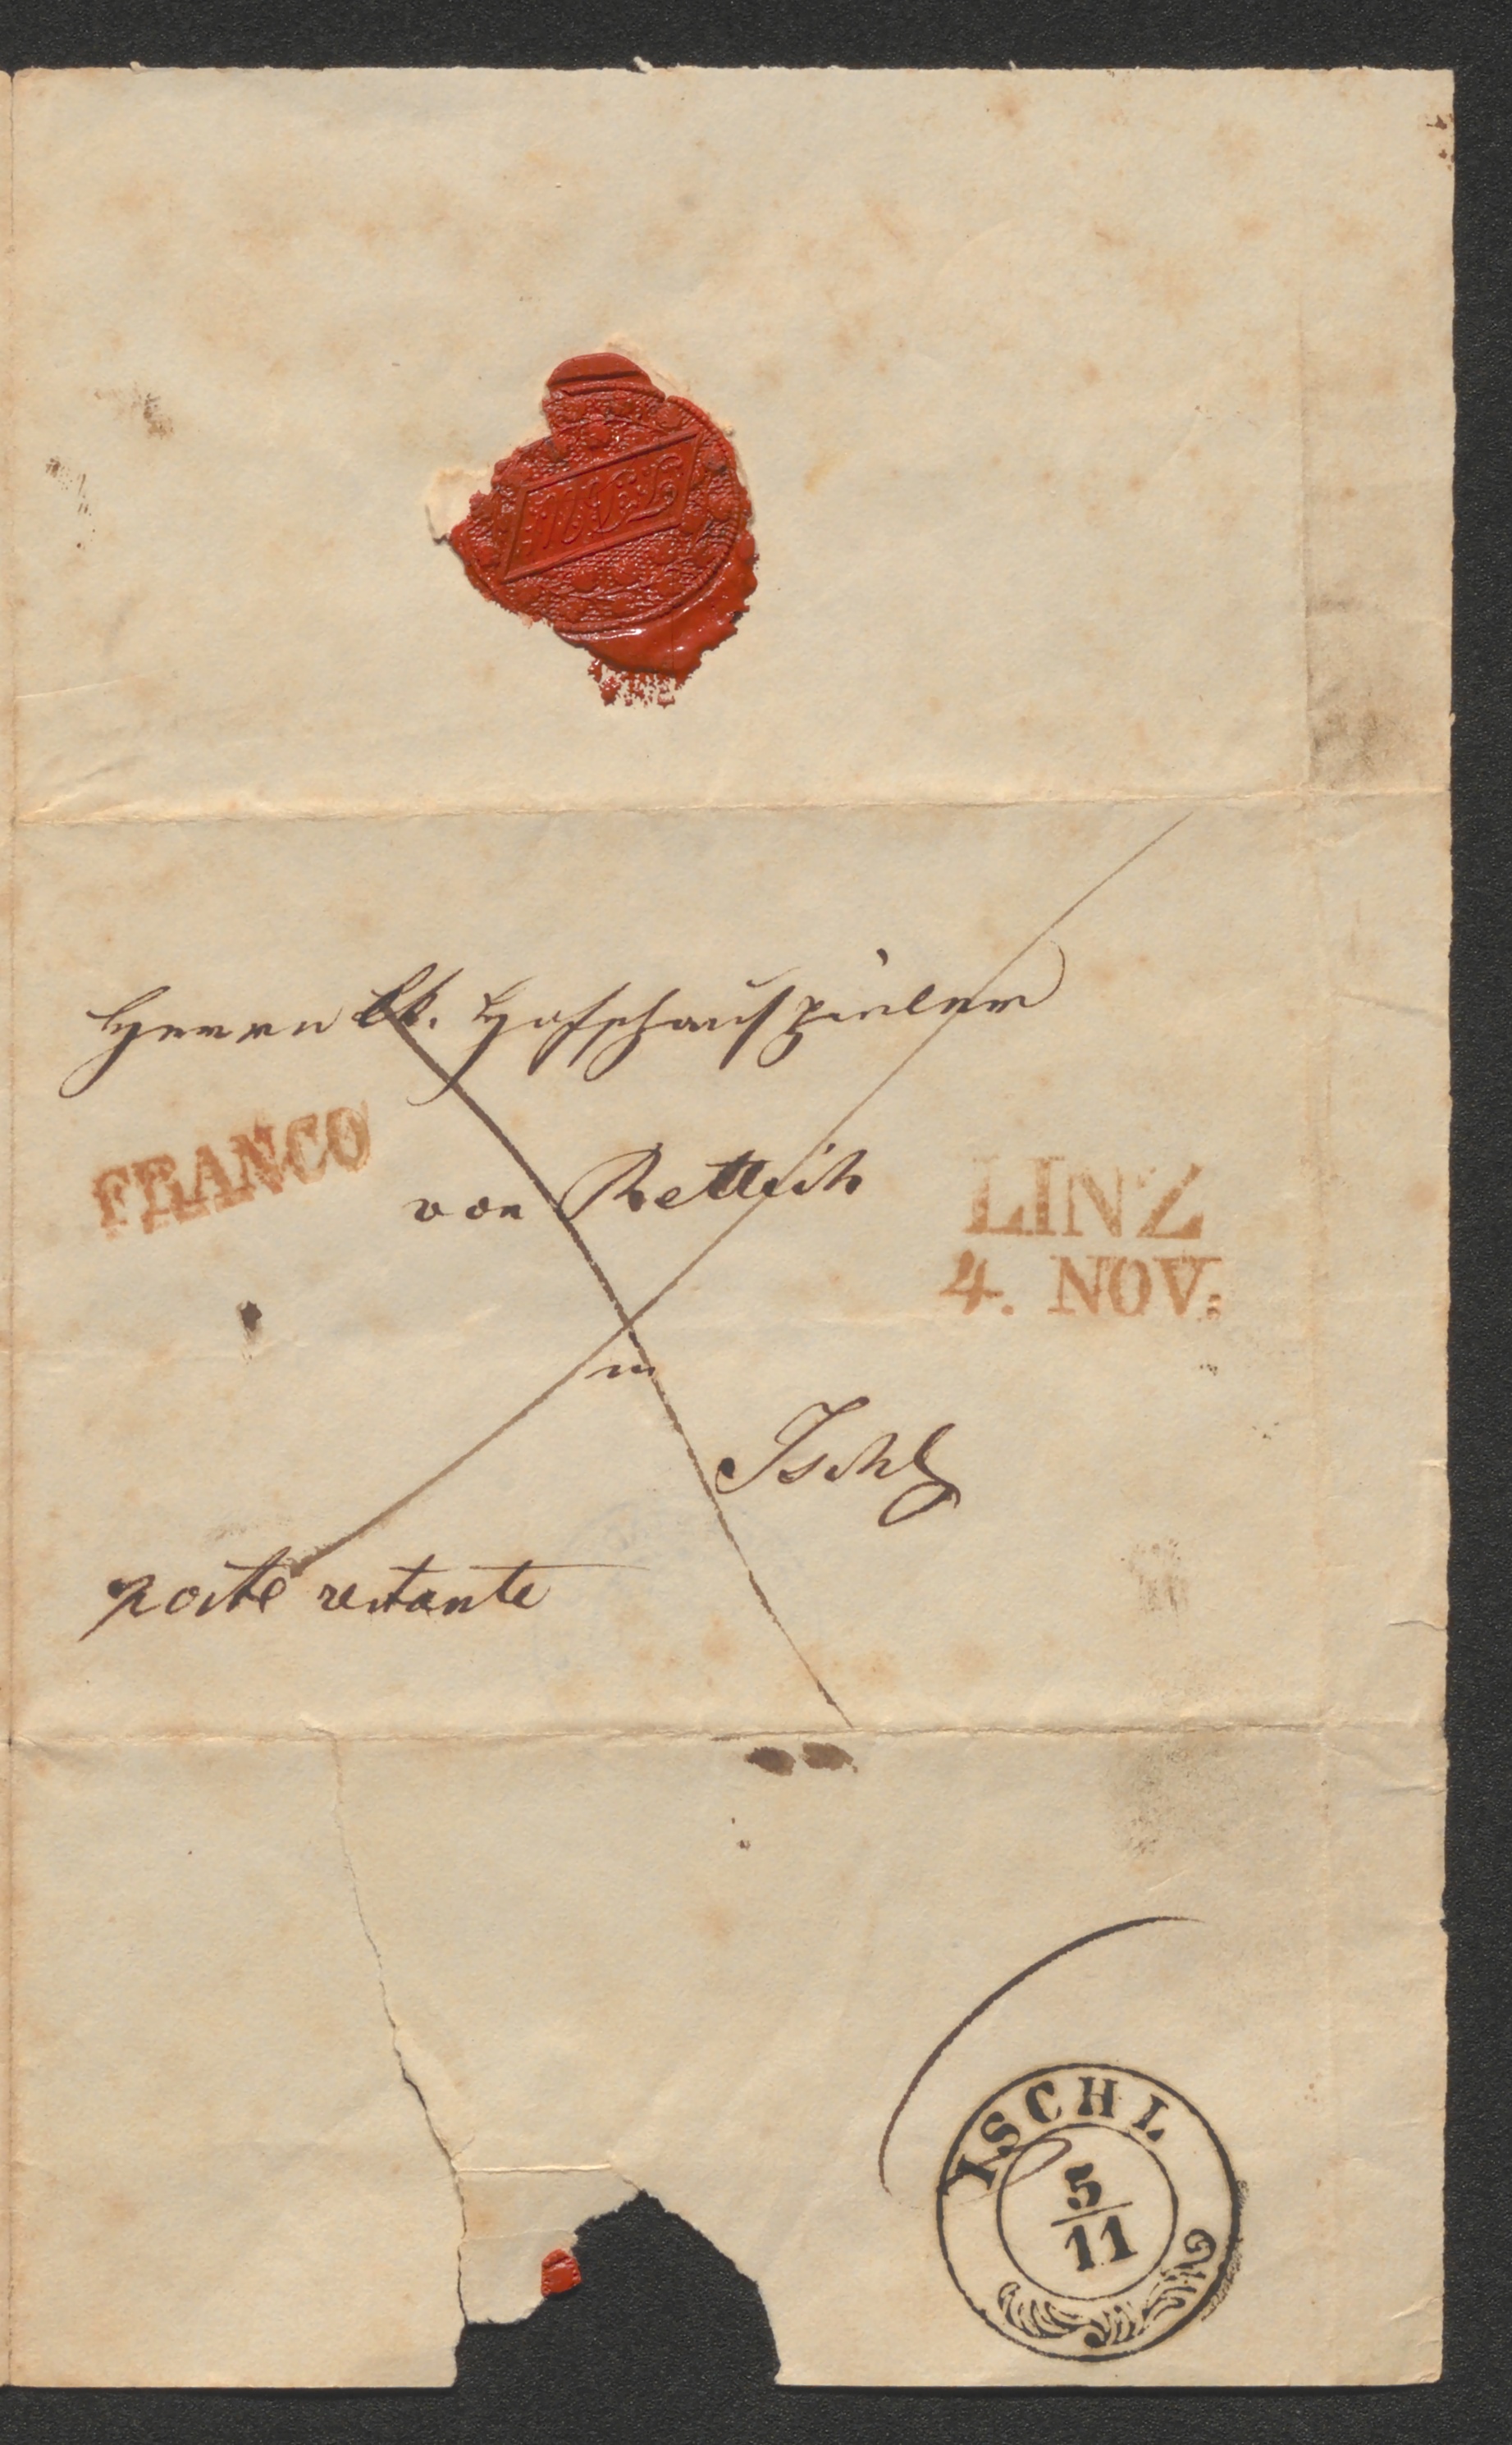 Herrn kk. Hofschauspieler
FRANCO
von Rettich
LINZ
4. NOV.
in
Ischl
poste restante
ISCHL
5
11